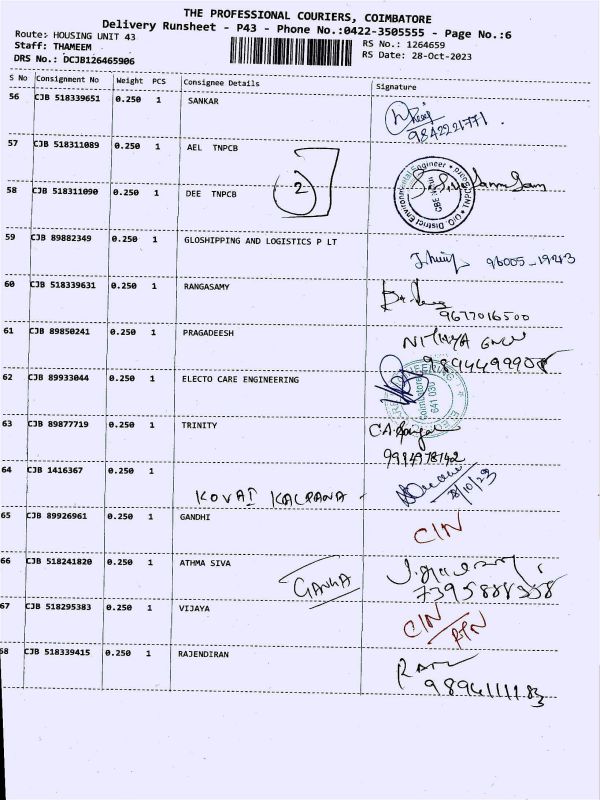 THE PROFESSIONAL COURIERS, COIMBATORE
Delivery Runsheet - P43 - Phone No.:0422-3505555 - Page No.:6
Route: HOUSING UNIT 43
RS No.: 1264659
Staff: THAMEEM
RS Date: 28-Oct-2023
DRS No.: DCJB126465906
S No Consignment No Weight PCS Consignee Details Signature
56 CJB 518339651 0.250 1 SANKAR
9842221771.
57 CJB 518311089 0.250 1 AEL TNPCB
58 CJB 518311090 0.250 1 DEE TNPCB 2
O/O. District Environmental Engineer TNPCBoard
59 CJB 89882349 0.250 1 GLOSHIPPING AND LOGISTICS P LT
96005-19243
60 CJB 518339631 0.250 1 RANGASAMY
9677016500
61 CJB 89850241 0.250 1 PRAGADEESH NITHYA
62 CJB 89933044 0.250 1 ELECTO CARE ENGINEERING
641 030
63 CJB 89877719 0.250 1 TRINITY
64 CJB 1416367 0.250 1
KOVAI KALPANA -
28/10/23
65 CJB 89926961 0.250 1 GANDHI CIN
66 CJB 518241820 0.250 1 ATHMA SIVA
GANGA
7395888358
67 CJB 518295383 0.250 1 VIJAYA CIN
68 CJB 518339415 0.250 1 RAJENDIRAN
9894111183